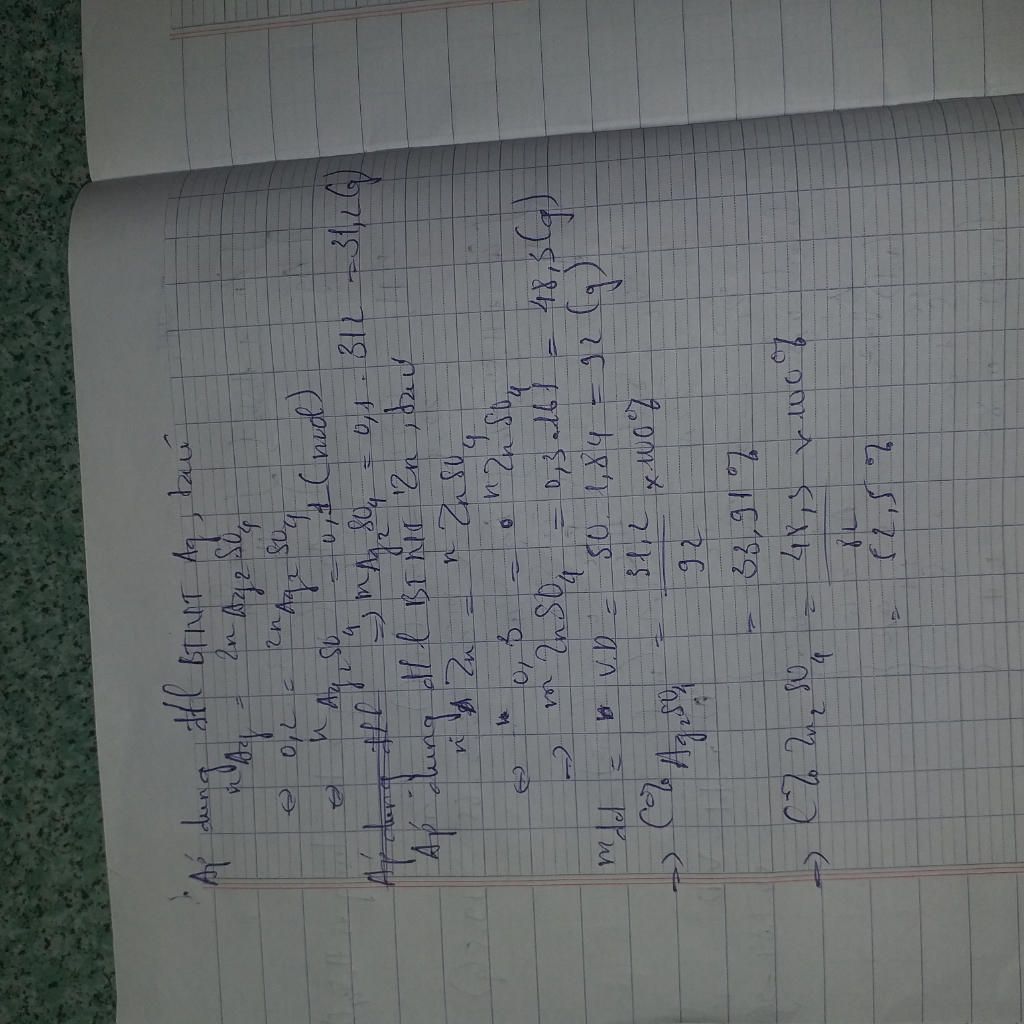 Áp dụng ĐL BTNT Ag, ta có
nAg = 2nAg2SO4
⇔ 0,2 = 2nAg2SO4
⇔ nAg2SO4 = 0,1 (mol)
⇒ mAg2SO4 = 0,1 . 312 = 31,2 (g)
Áp dụng ĐL BTNT Zn, ta có
nZn = nZnSO4
⇔ 0,3 = nZnSO4
⇒ mZnSO4 = 0,3 . 161 = 48,3 (g)
mdd = V.D = 50 . 1,84 = 92 (g)
⇒ C% Ag2SO4 = 31,2 / 92 x 100%
= 33,91%
⇒ C% Zn2SO4 = 48,3 / 92 x 100%
= 52,5%